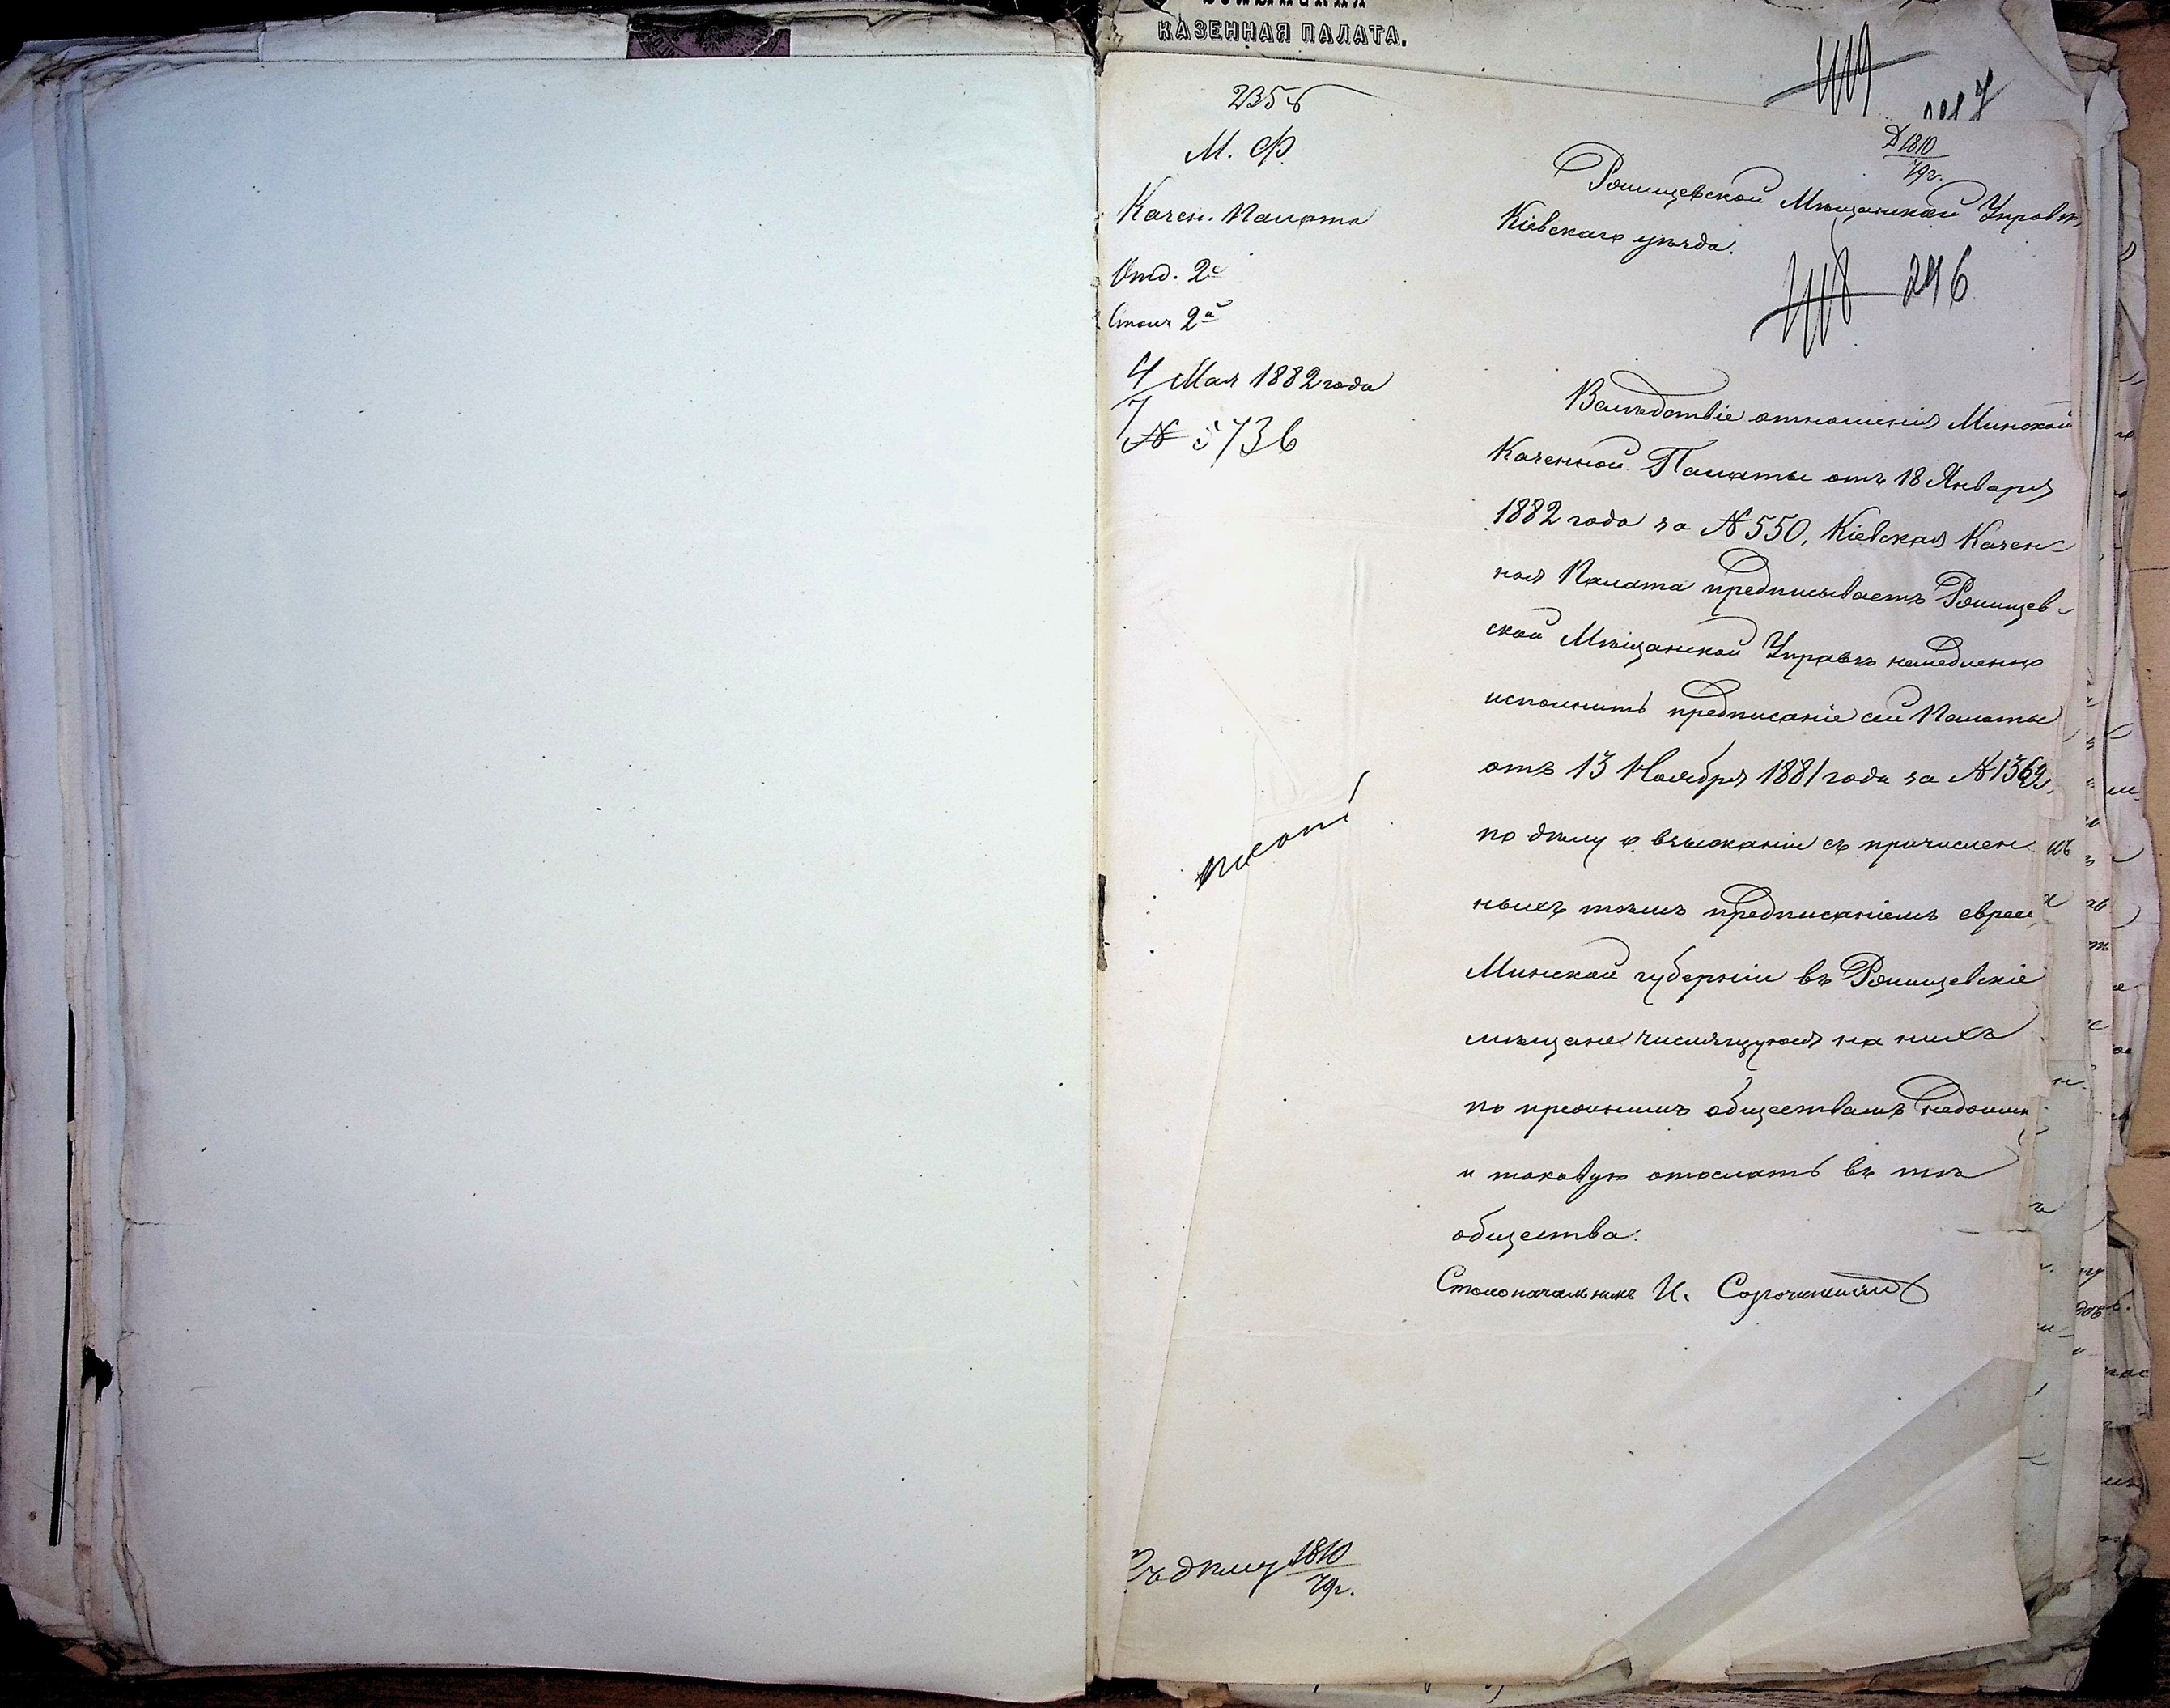 КАЗЕННАЯ ПАЛАТА.
М. Ф.
Казен. Палата
Отд. 2е
Столъ 2й
4 Мая 1882 года
7
№ 5736
Д 1810
79 г.
Мѣщанской Управѣ,
Кіевскаго уѣзда.
296
Вслѣдствіе отношенія Минской
Казенной Палаты отъ 18 Января
1882 года за № 550, Кіевская Казен-
ная Палата предписываетъ Рокищев-
ской Мѣщанской Управѣ немедленно
исполнить предписаніе сей Палаты
отъ 13 Ноября 1881 года за №
по дѣлу о взысканіи съ причислен
ныхъ тѣмъ предписаніемъ евреи
Минской губерніи въ
мѣщане числящуюся на нихъ
по прежнимъ обществамъ недоимк
и таковую отослать въ тѣ
общества.
Столоначальникъ И.
Къ дѣлу 1810
79 г.